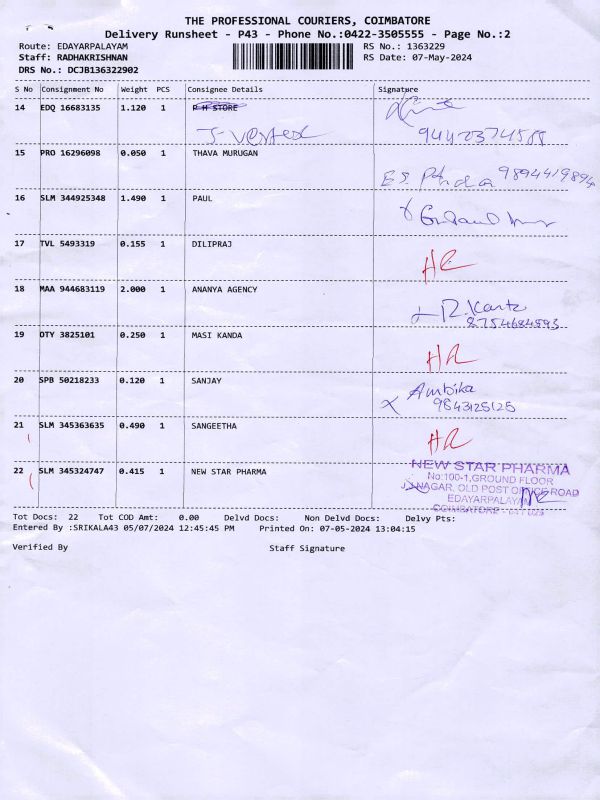 THE PROFESSIONAL COURIERS, COIMBATORE
Delivery Runsheet - P43 - Phone No.:0422-3505555 - Page No.:2
Route: EDAYARPALAYAM RS No.: 1363229
Staff: RADHAKRISHNAN RS Date: 07-May-2024
DRS No.: DCJB136322902
S No Consignment No Weight PCS Consignee Details Signature
14 EDQ 16683135 1.120 1 P H STORE
J-Vertex
15 PRO 16296098 0.050 1 THAVA MURUGAN
9894419894
16 SLM 344925348 1.490 1 PAUL
17 TVL 5493319 0.155 1 DILIPRAJ
18 MAA 944683119 2.000 1 ANANYA AGENCY
8754684593
19 OTY 3825101 0.250 1 MASI KANDA
20 SPB 50218233 0.120 1 SANJAY Ambika
9843125125
21 SLM 345363635 0.490 1 SANGEETHA
22 SLM 345324747 0.415 1 NEW STAR PHARMA NEW STAR PHARMA
No:100-1,GROUND FLOOR
NAGAR, OLD POST OFFICE ROAD
EDAYARPALAYAM
COIMBATORE - 641 025
Tot Docs: 22 Tot COD Amt: 0.00 Delvd Docs: Non Delvd Docs: Delvy Pts:
Entered By :SRIKALA43 05/07/2024 12:45:45 PM Printed On: 07-05-2024 13:04:15
Verified By Staff Signature